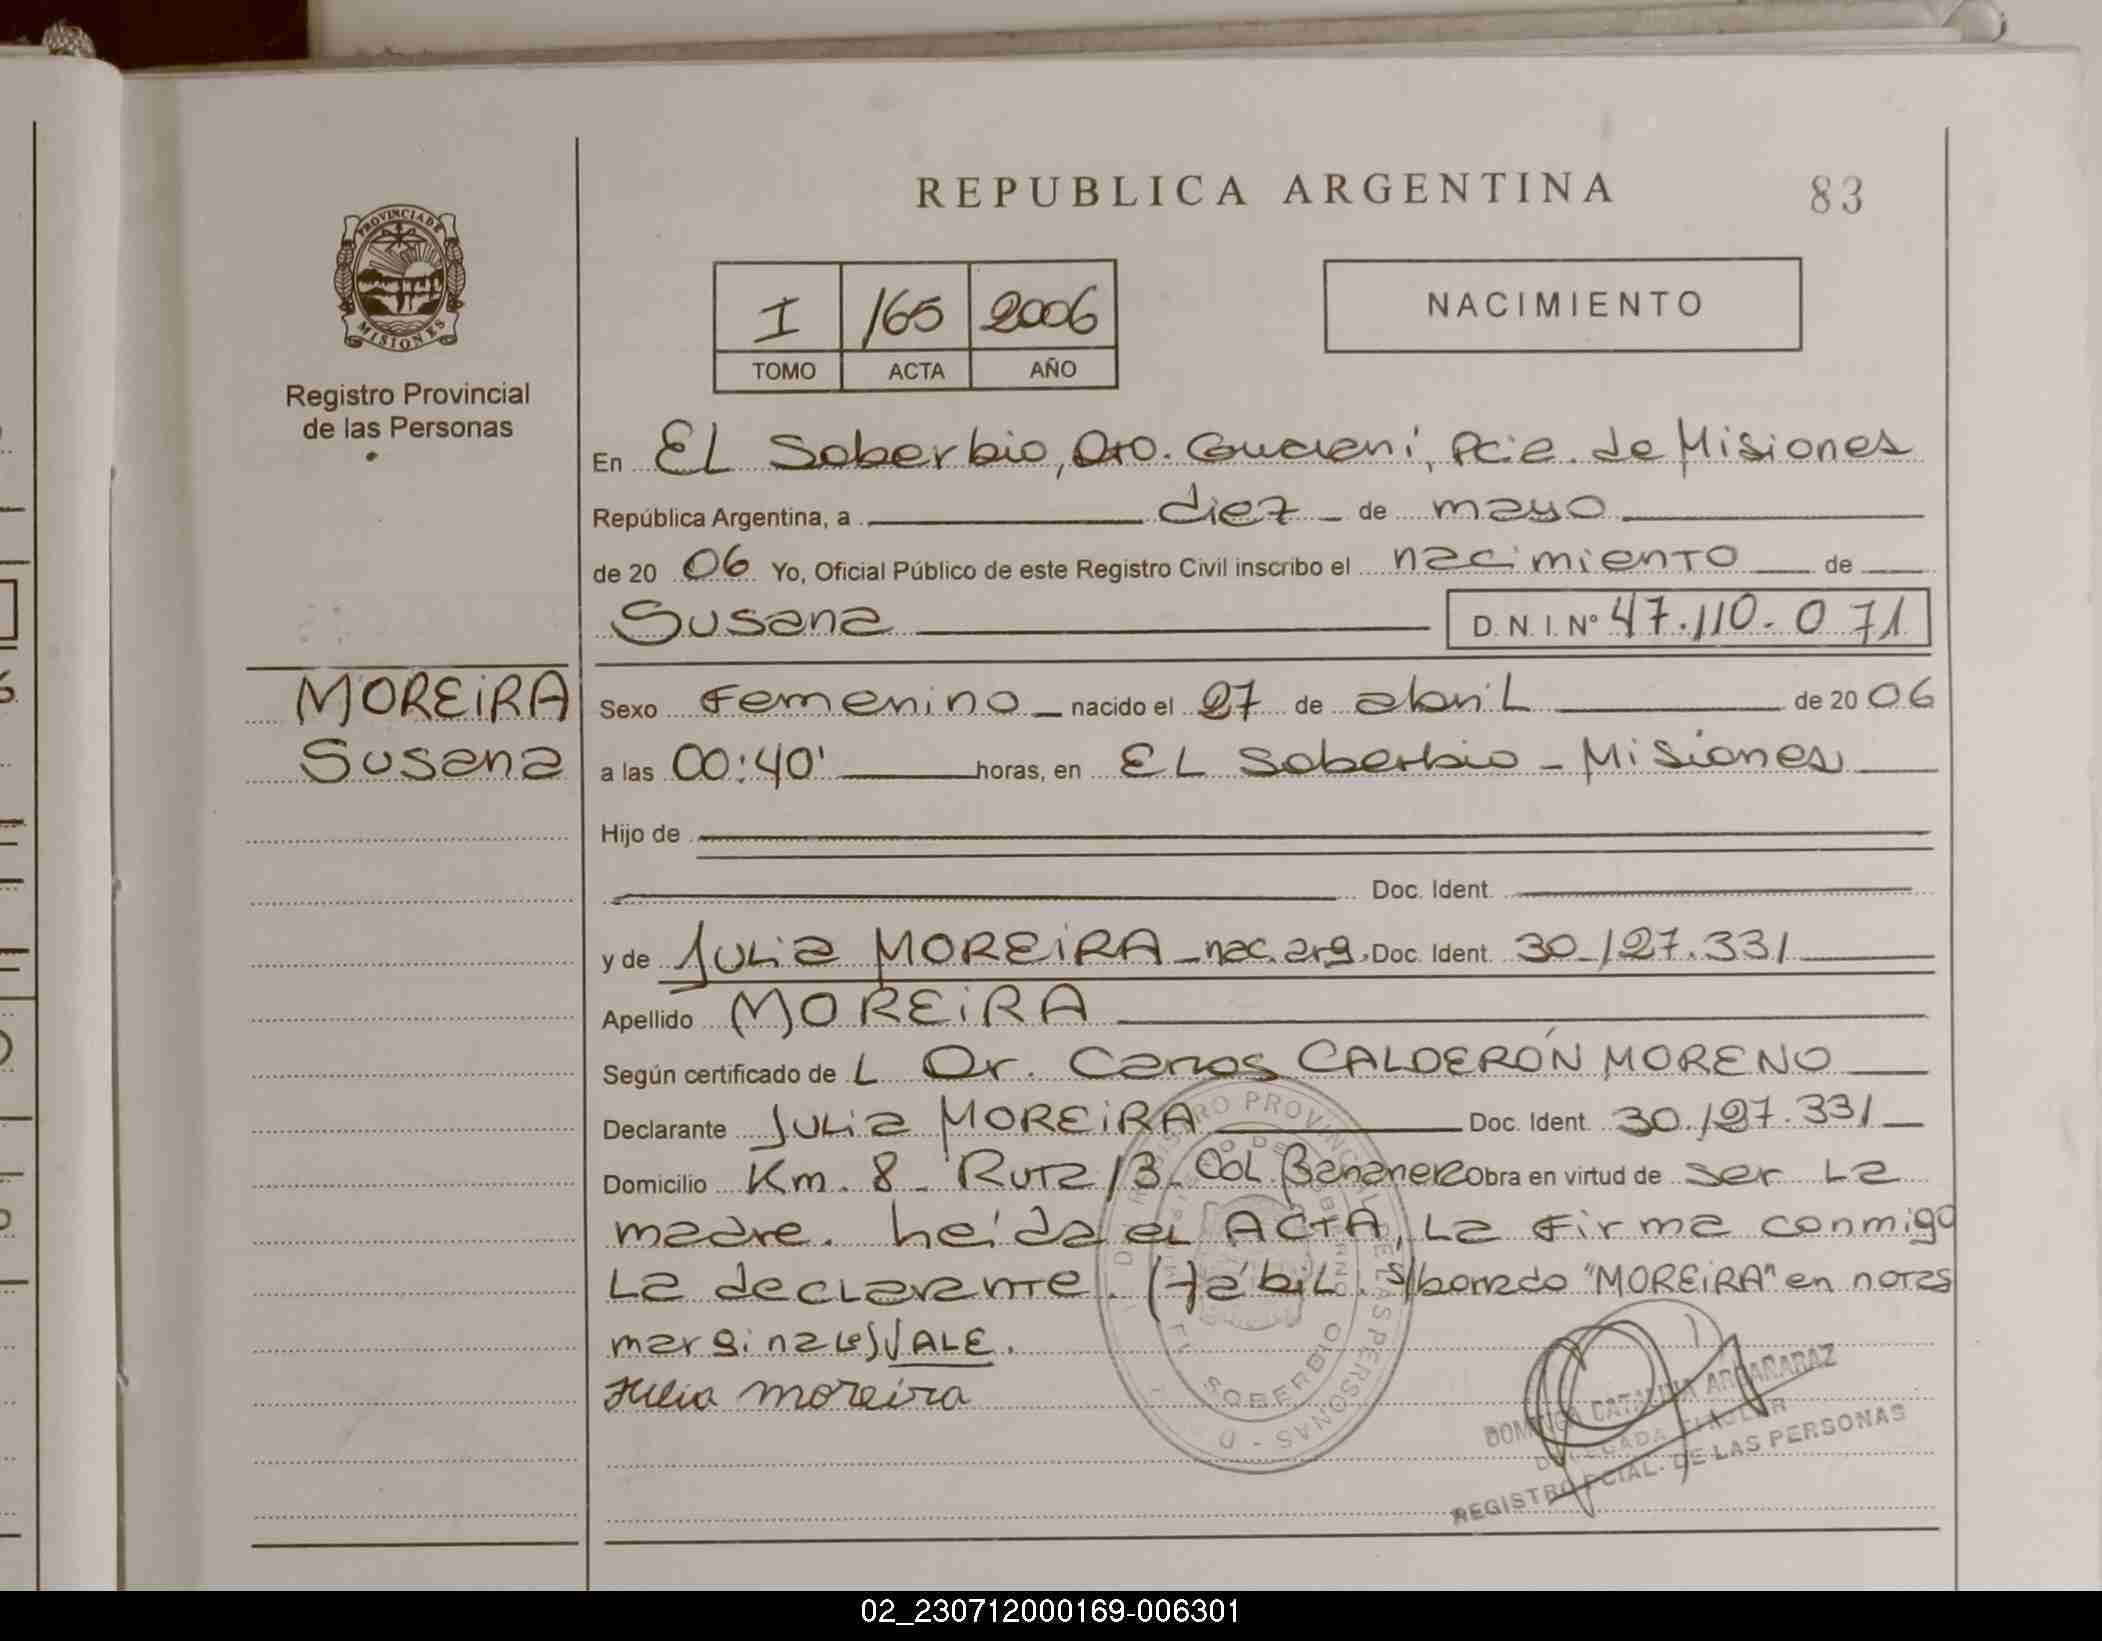 REPUBLICA ARGENTINA
83
PROVINCIA DE
MISIONES
Registro Provincial
de las Personas
I /65 2006
TOMO ACTA AÑO
NACIMIENTO
En EL Soberbio, Dto. Guarani, Pcia. de Misiones
República Argentina, a diez de mayo
de 20 06 Yo, Oficial Público de este Registro Civil inscribo el nacimiento de
Susana
D.N.I. Nº 47.110.071
MOREIRA
Susana
Sexo Femenino nacido el 27 de abril de 20 06
a las 00:40' horas, en EL Soberbio - Misiones
Hijo de
Doc. Ident.
y de Julia MOREIRA - nac. arg. Doc. Ident. 30.127.331
Apellido MOREIRA
Según certificado de L Dr. Carlos CALDERÓN MORENO
Declarante Julia MOREIRA Doc. Ident. 30.127.331
Domicilio Km. 8 - Ruta 13. Col. Bananera Obra en virtud de ser La
madre. Leída el ACTA, La firma conmigo
La declarante. Hábil. S/borrado "MOREIRA" en notas
marginales) VALE.
Julia moreira
REGISTRO PROVINCIAL DE LAS PERSONAS
SOBERBIO
CATALINA ARGAÑARAZ
DELEGADA TITULAR
REGISTRO PCIAL. DE LAS PERSONAS
02_230712000169-006301